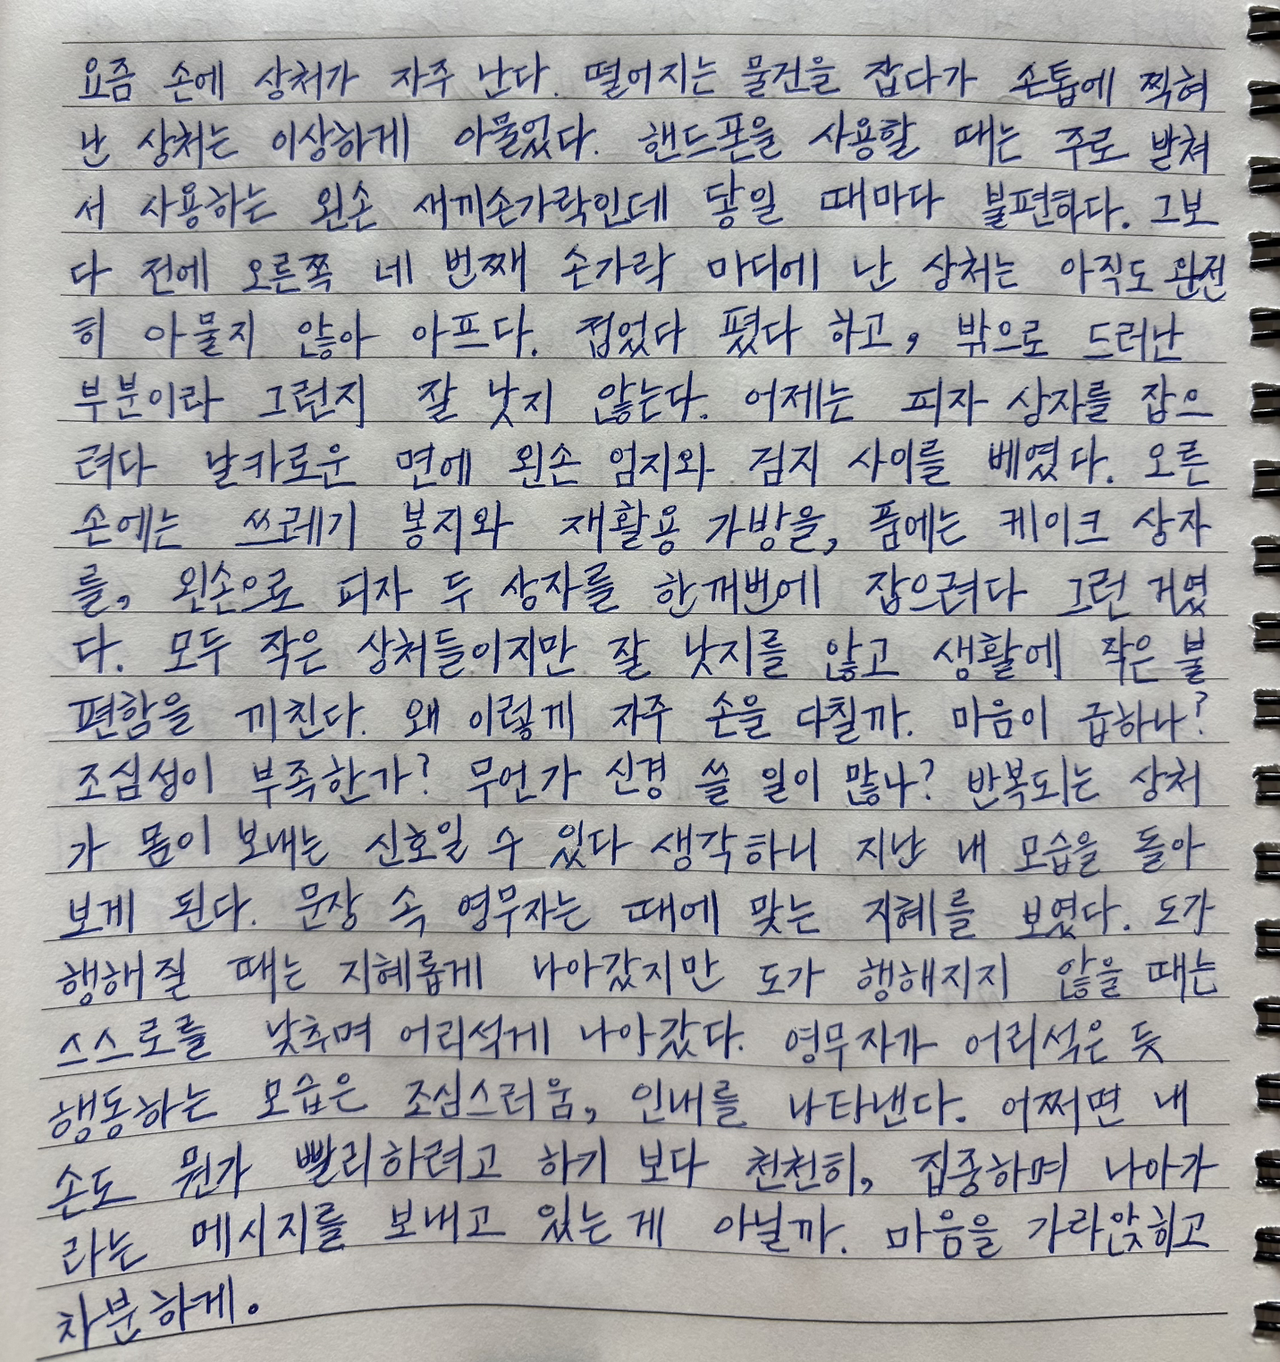 요즘 손에 상처가 자주 난다. 떨어지는 물건을 잡다가 손톱에 찍혀
난 상처는 이상하게 아물었다. 핸드폰을 사용할 때는 주로 받쳐
서 사용하는 왼손 새끼손가락인데 닿일 때마다 불편하다. 그보
다 전에 오른쪽 네 번째 손가락 마디에 난 상처는 아직도 완전
히 아물지 않아 아프다. 접었다 폈다 하고, 밖으로 드러난
부분이라 그런지 잘 낫지 않는다. 어제는 피자 상자를 잡으
려다 날카로운 면에 왼손 엄지와 검지 사이를 베였다. 오른
손에는 쓰레기 봉지와 재활용 가방을, 품에는 케이크 상자
를, 왼손으로 피자 두 상자를 한꺼번에 잡으려다 그런 거였
다. 모두 작은 상처들이지만 잘 낫지를 않고 생활에 작은 불
편함을 끼친다. 왜 이렇게 자주 손을 다칠까. 마음이 급하나?
조심성이 부족한가? 무언가 신경 쓸 일이 많나? 반복되는 상처
가 몸이 보내는 신호일 수 있다 생각하니 지난 내 모습을 돌아
보게 된다. 문장 속 영무자는 때에 맞는 지혜를 보였다. 도가
행해질 때는 지혜롭게 나아갔지만 도가 행해지지 않을 때는
스스로를 낮추며 어리석게 나아갔다. 영무자가 어리석은 듯
행동하는 모습은 조심스러움, 인내를 나타낸다. 어쩌면 내
손도 뭔가 빨리하려고 하기 보다 천천히, 집중하며 나아가
라는 메시지를 보내고 있는 게 아닐까. 마음을 가라앉히고
차분하게.